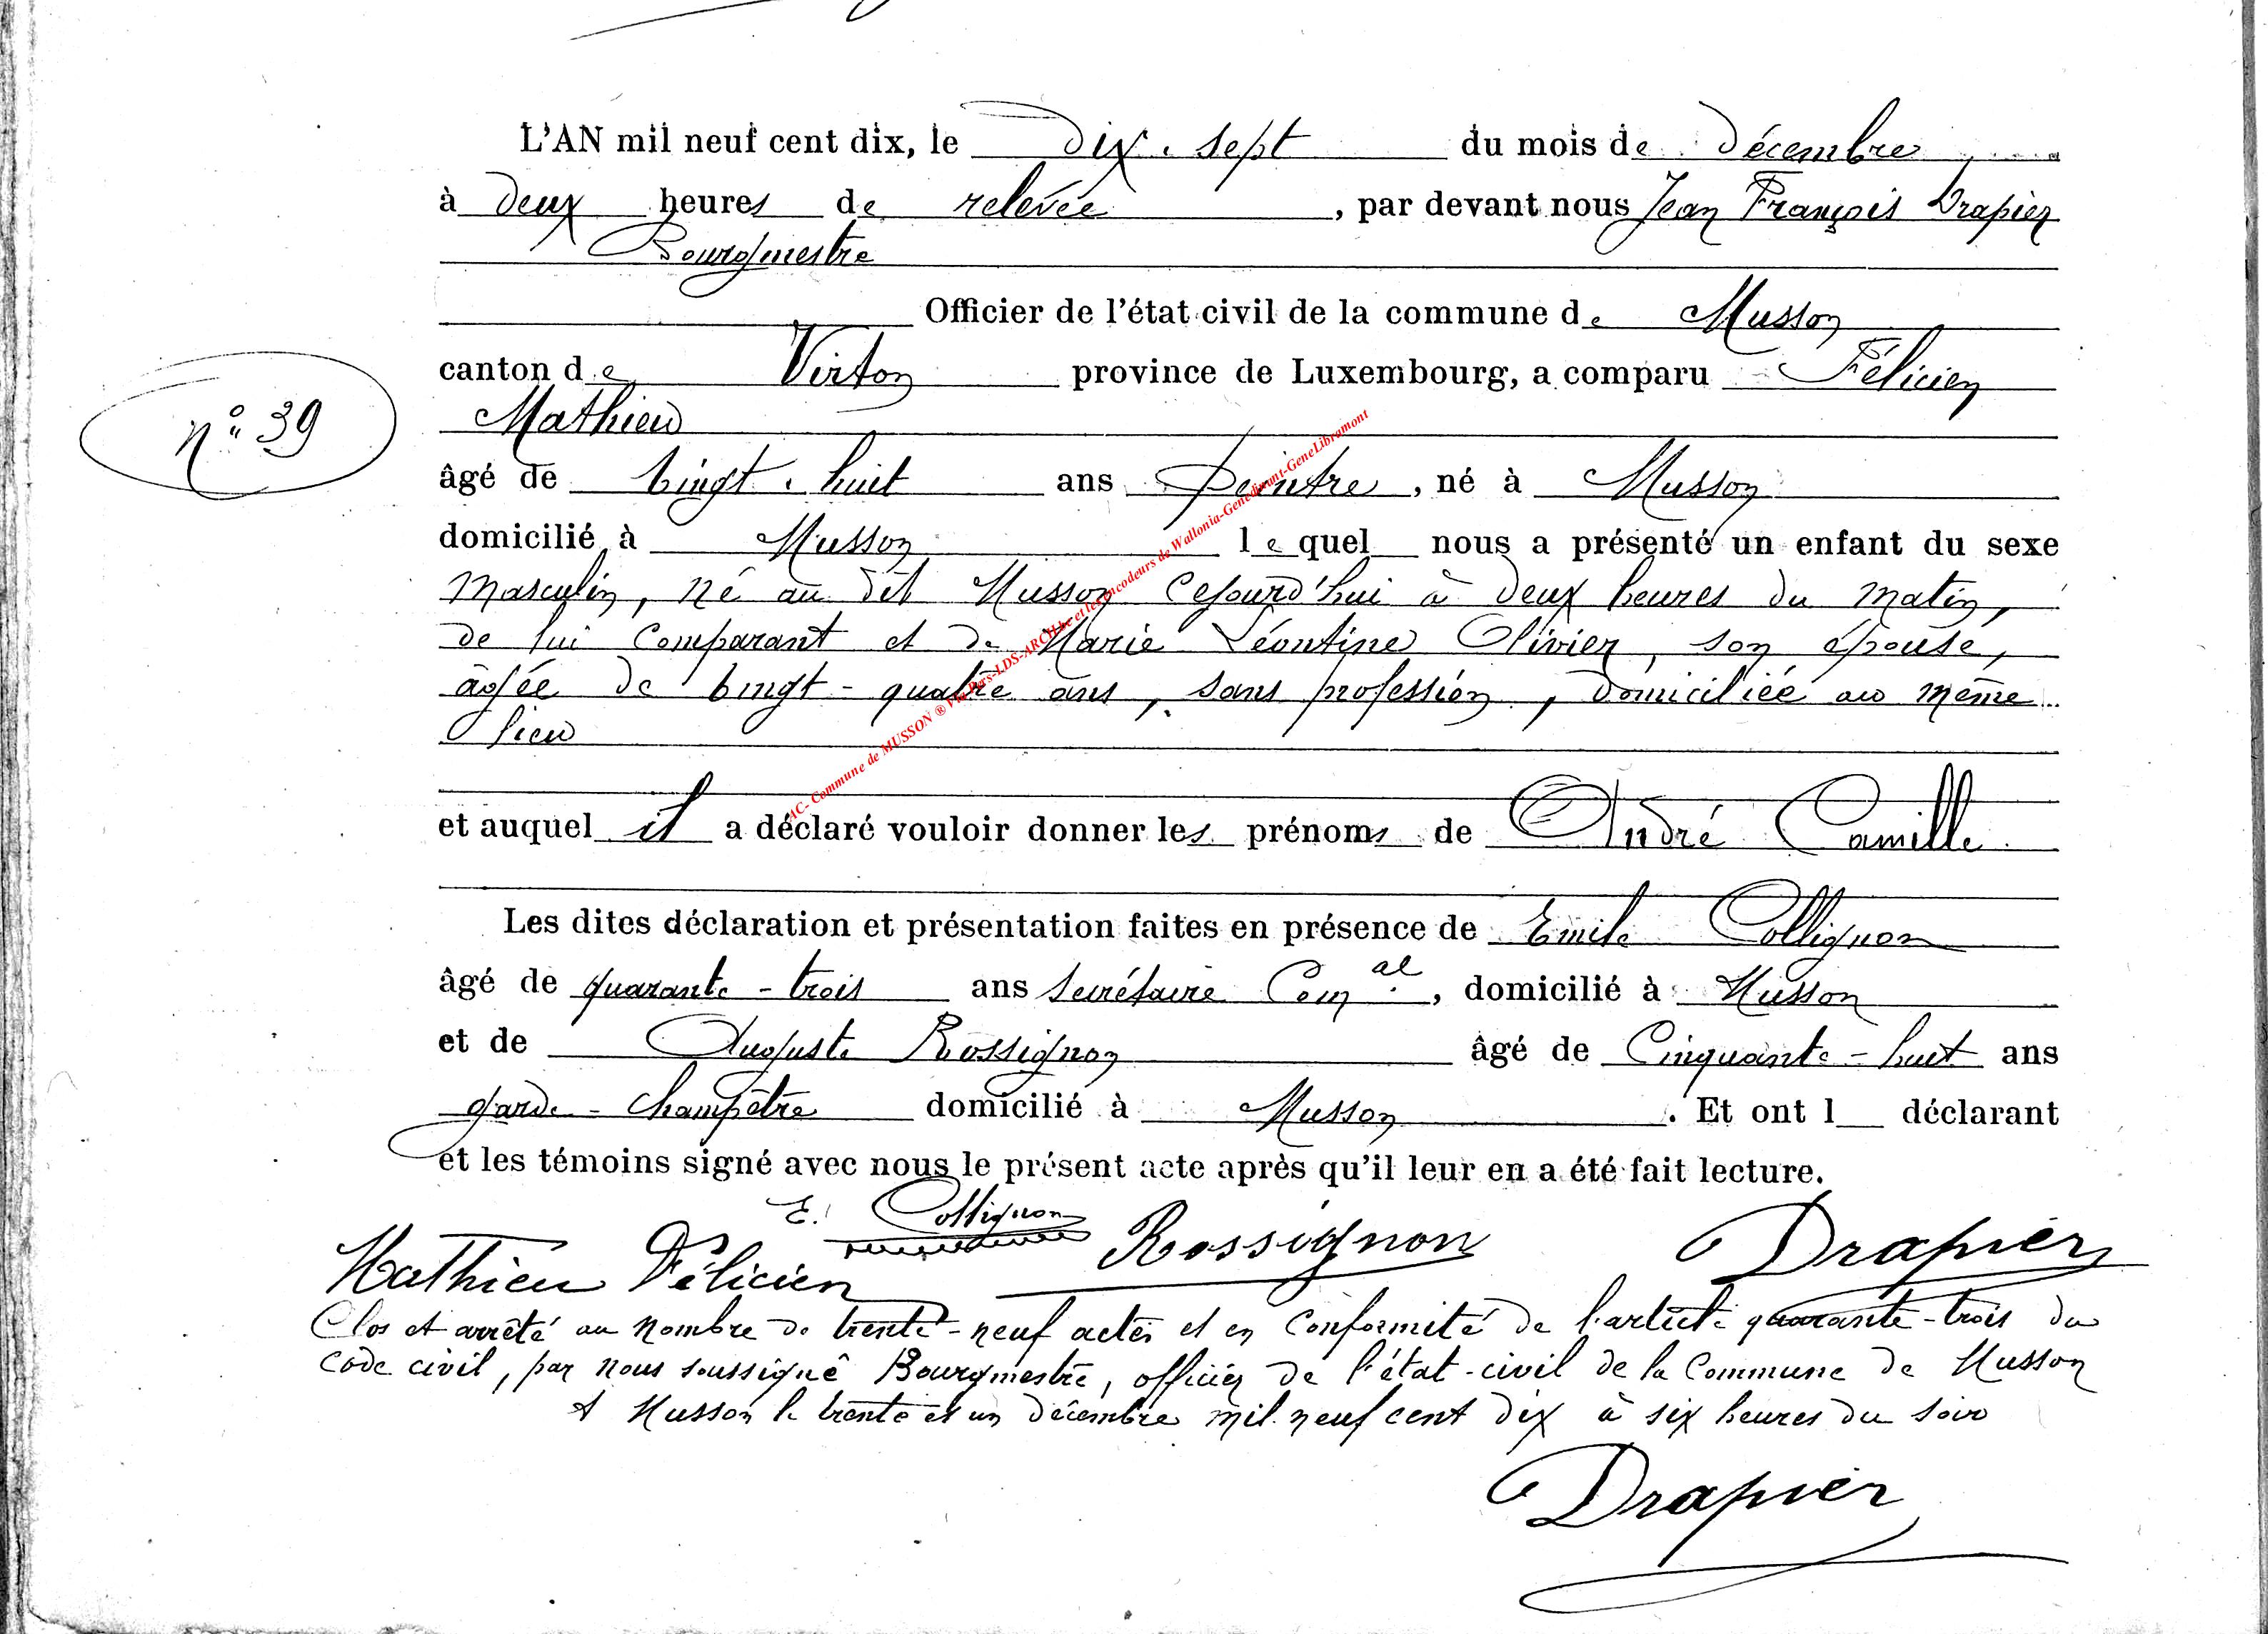 L'AN mil neuf cent dix, le dix-sept du mois de Décembre
à deux heures de relevée, par devant nous Jean François Drapier
Bourgmestre
Officier de l'état civil de la commune de Musson
canton de Virton province de Luxembourg, a comparu Félicien
n° 39
Mathieu
âgé de vingt-huit ans peintre, né à Musson
domicilié à Musson lequel nous a présenté un enfant du sexe
masculin, né au dit Musson cejourd'hui à deux heures du matin,
de lui comparant et de Marie Léontine Olivier, son épouse,
âgée de vingt-quatre ans, sans profession, domiciliée au même
lieu
et auquel il a déclaré vouloir donner les prénoms de André Camille
Les dites déclaration et présentation faites en présence de Emile Collignon
âgé de quarante-trois ans secrétaire Com.al, domicilié à Musson
et de Auguste Rossignon âgé de Cinquante-huit ans
garde-champêtre domicilié à Musson. Et ont l déclarant
et les témoins signé avec nous le présent acte après qu'il leur en a été fait lecture.
E. Collignon Rossignon Drapier
Mathieu Félicien
Clos et arrêté au nombre de trente-neuf actes et en conformité de l'article quarante-trois du
code civil, par nous soussigné Bourgmestre, officier de l'état-civil de la Commune de Musson
A Musson le trente et un décembre mil neuf cent dix à six heures du soir
Drapier
AC- Commune de MUSSON ® Via Pers-LDS-ARCH.be et les encodeurs de Wallonia-Genedinant-GeneLibramont